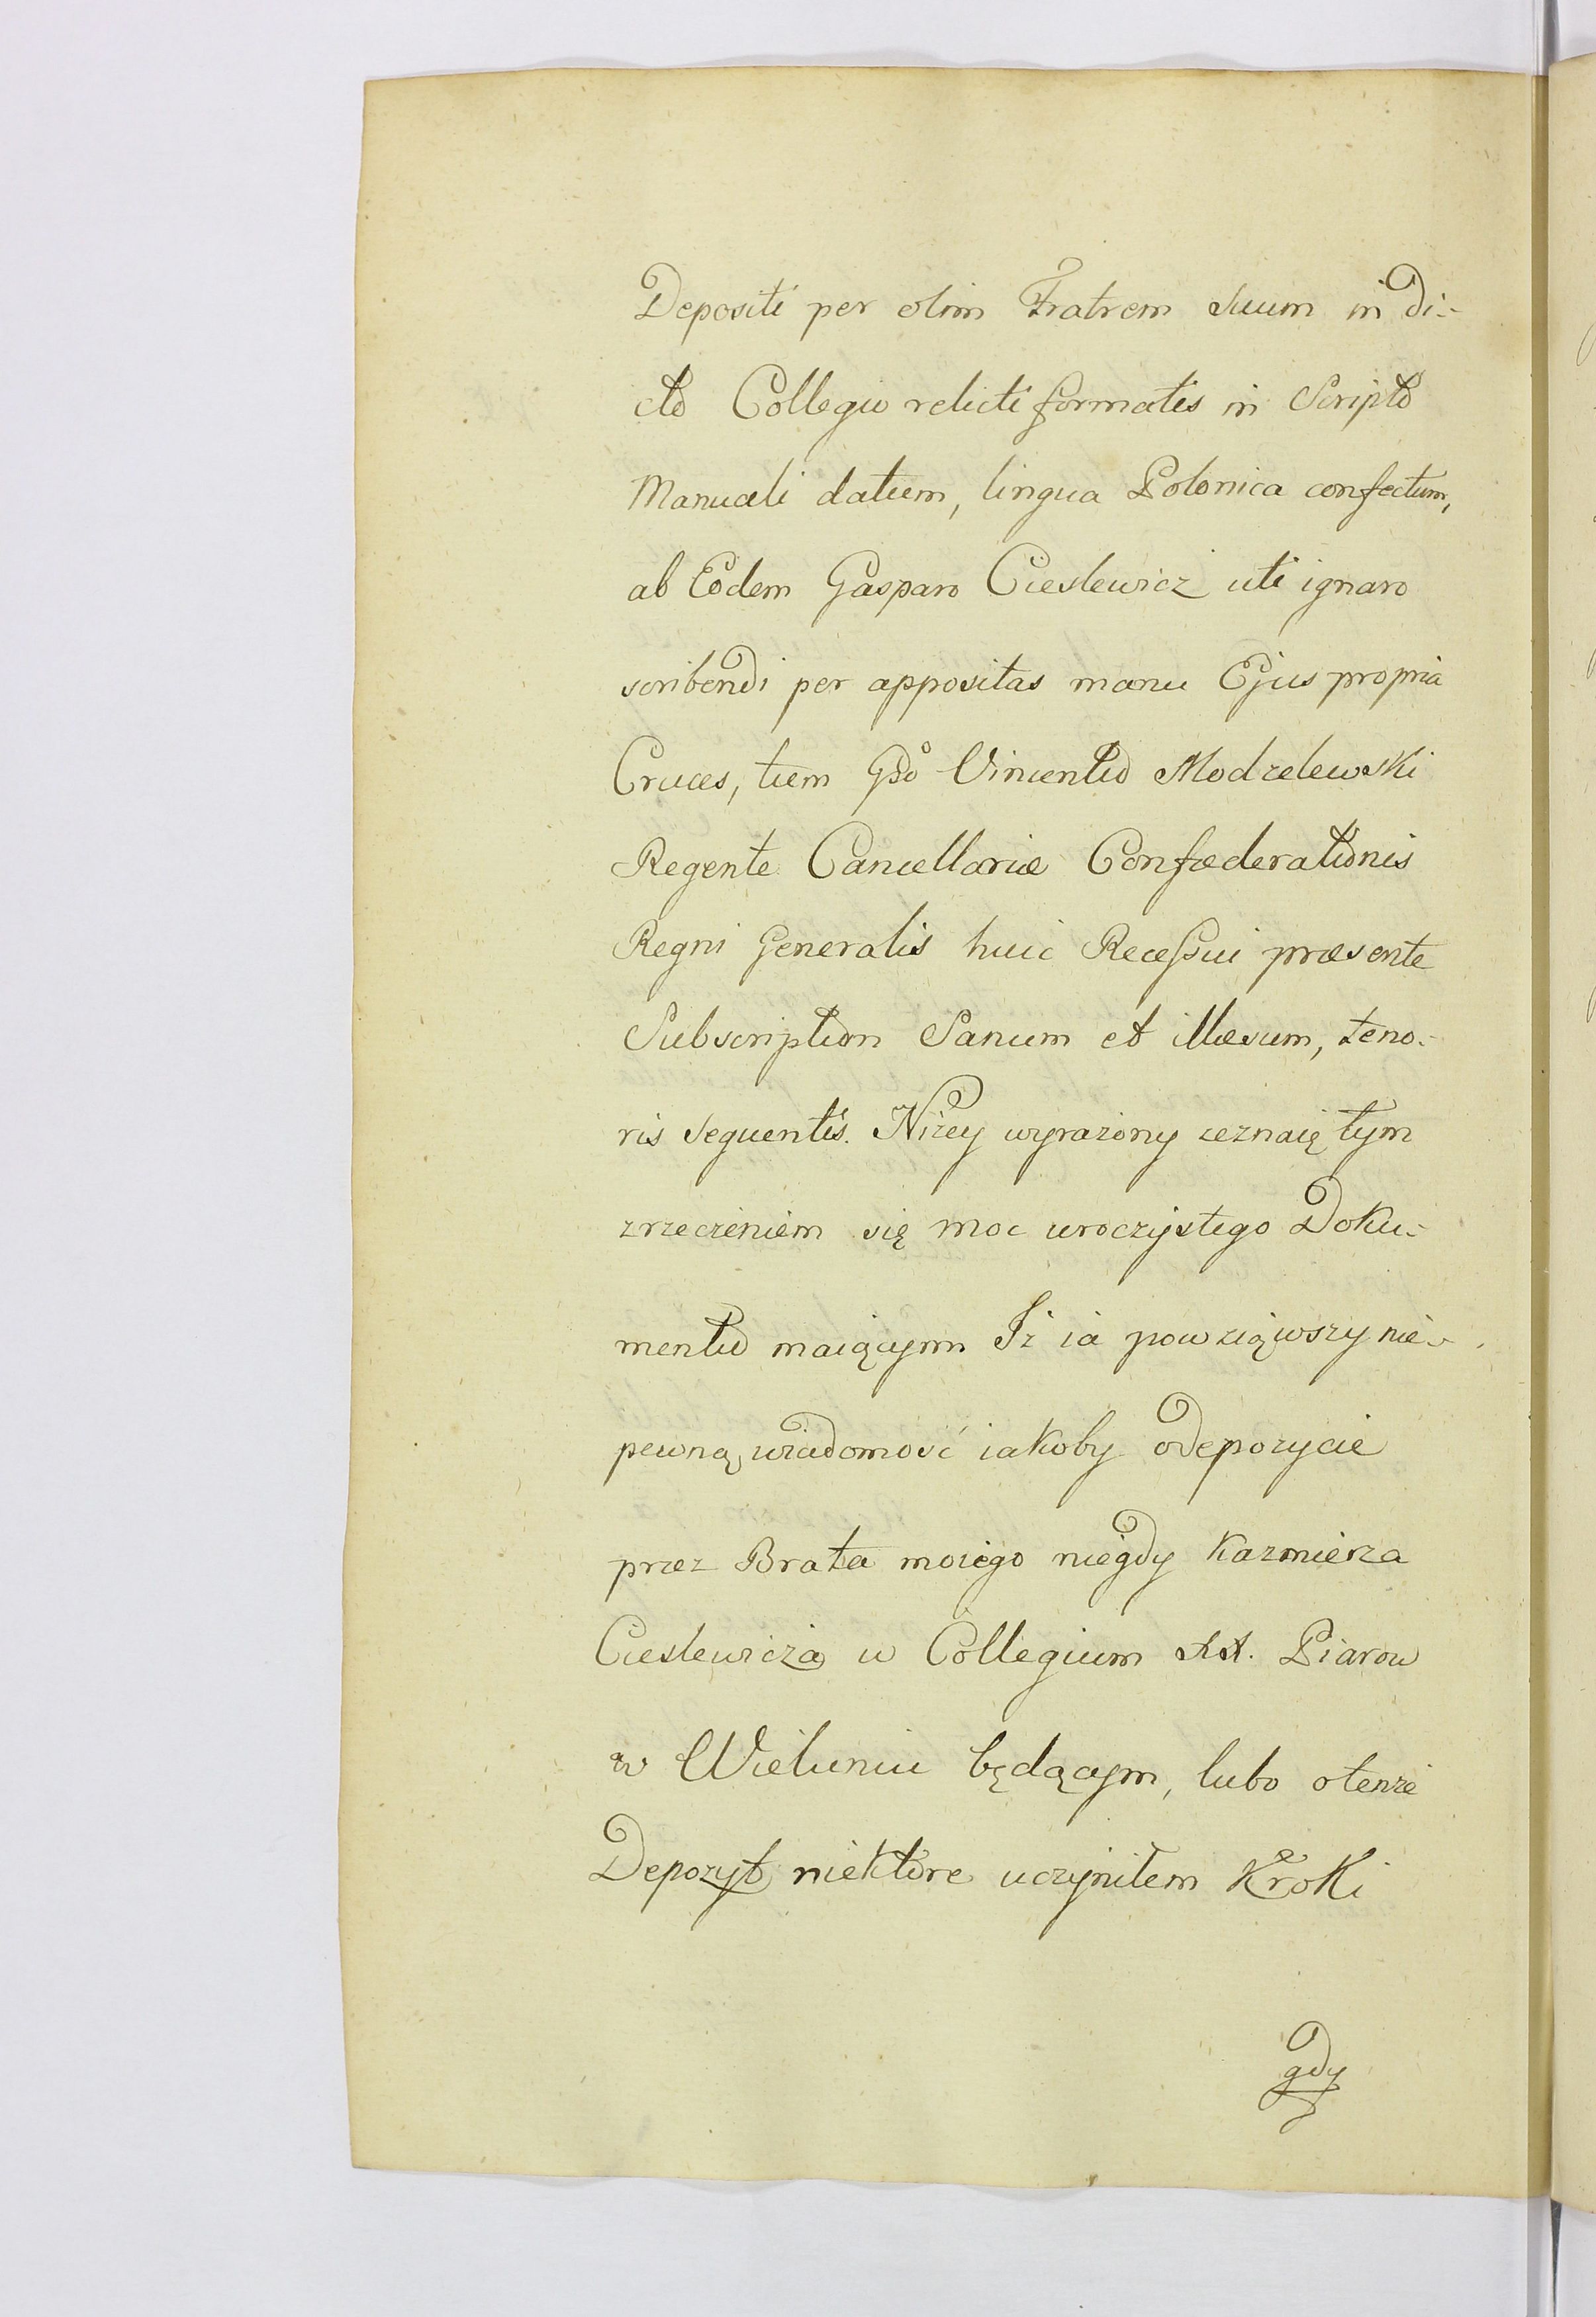 Depositi per olim Fratrem Suum in di-
cto Collegio relicti formatis in Scripto
Manuali datum, lingua Polonica confectum,
ab Eodem Gasparo Cieslewicz uti ignaro
scribendi per appositas manu Ejus propria
Cruces, tum Gso Vincentio Modzelewski
Regente Cancellariæ Confæderationis
Regni Generalis huic Recessui præsente
Subscriptum Sanum et illæsum, teno-
ris sequentis. Niżey wyrażony zeznaię tym
zrzeczeniem się moc uroczystego Doku-
mentu maiącym Iż ia powziąwszy nie-
pewną wiadomość iakoby o depozycie
przez Brata moiego niegdy Kazmierza
Cieslewicza w Collegium XX. Piarow
w Wieluniu będącym, lubo o tenże
Depozyt niektore uczyniłem Kroki
gdy